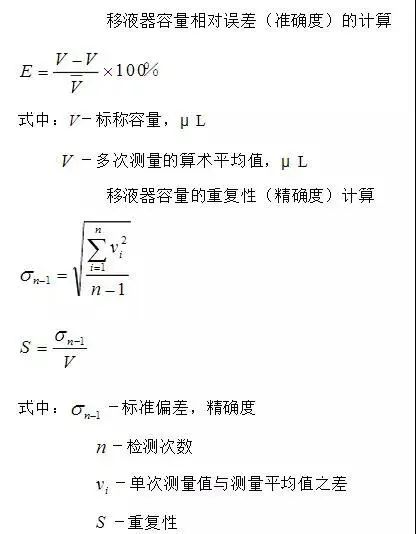 移液器容量相对误差（准确度）的计算
E = \frac{V - V}{\overline{V}} × 100%
式中：V－标称容量，μ L
V －多次测量的算术平均值，μ L
移液器容量的重复性（精确度）计算
σ_{n-1} = \sqrt{\frac{\sum_{i=1}^{n} v_i^2}{n-1}}
S = \frac{σ_{n-1}}{V}
式中：σ_{n-1} －标准偏差，精确度
n －检测次数
v_i －单次测量值与测量平均值之差
S －重复性